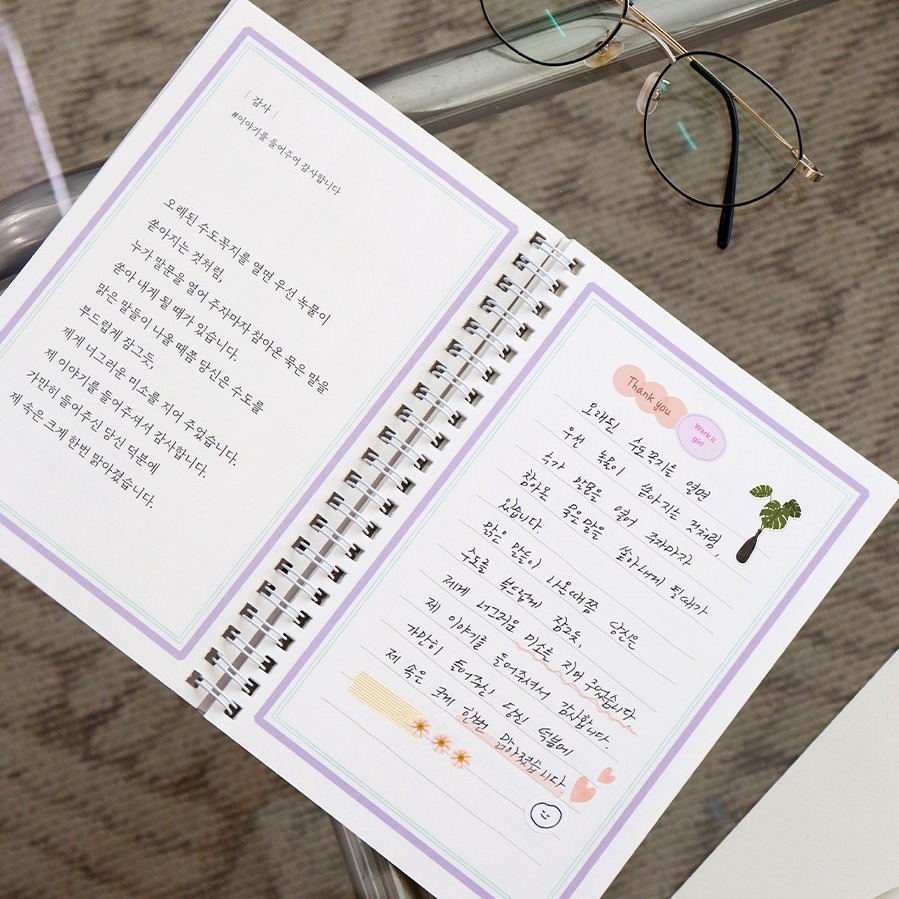 | 감사 |
#이야기를 들어주어 감사합니다
오래된 수도꼭지를 열면 우선 녹물이
쏟아지는 것처럼,
누가 말문을 열어 주자마자 참아온 묵은 말을
쏟아 내게 될 때가 있습니다.
맑은 말들이 나올 때쯤 당신은 수도를
부드럽게 잠그듯,
제게 너그러운 미소를 지어 주었습니다.
제 이야기를 들어주셔서 감사합니다.
가만히 들어주신 당신 덕분에
제 속은 크게 한번 맑아졌습니다.
Thank you
Work it
girl
오래된 수도꼭지를 열면
우선 녹물이 쏟아지는 것처럼,
누가 말문을 열어 주자마자
참아온 묵은 말을 쏟아내게 될때가
있습니다.
맑은 말들이 나올때쯤 당신은
수도를 부드럽게 잠그듯,
제게 너그러운 미소를 지어 주었습니다
제 이야기를 들어주셔서 감사합니다.
가만히 들어주신 당신 덕분에
제 속은 크게 한번 맑아졌습니다